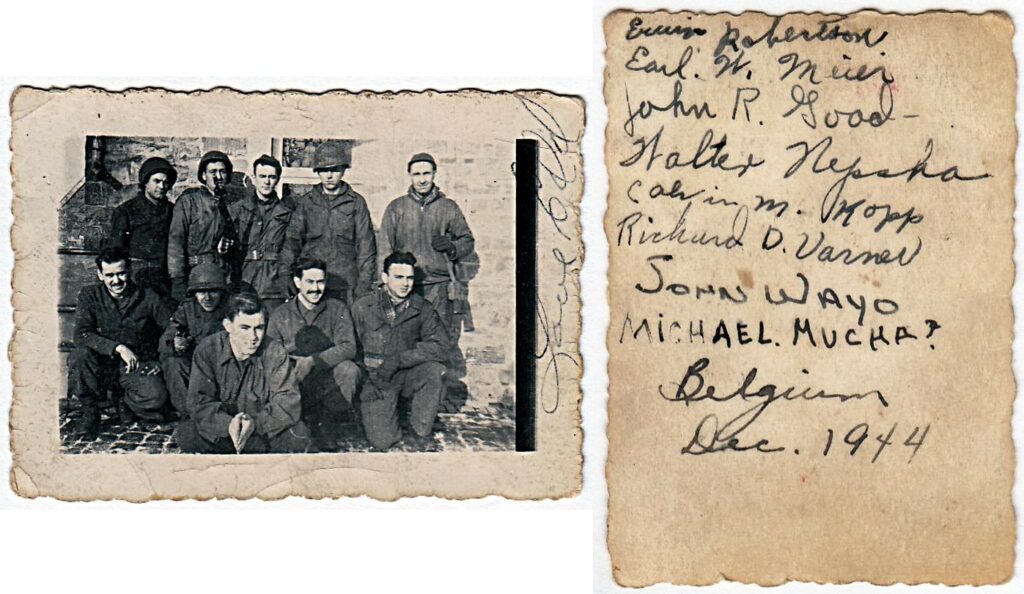 Love
Robertson
Earl. W. Meier
John R. Good-
Walter
Calvin M. Kopp
Richard D. Varner
JOHN WAYO
MICHAEL. MUCHA?
Belgium
Dec. 1944